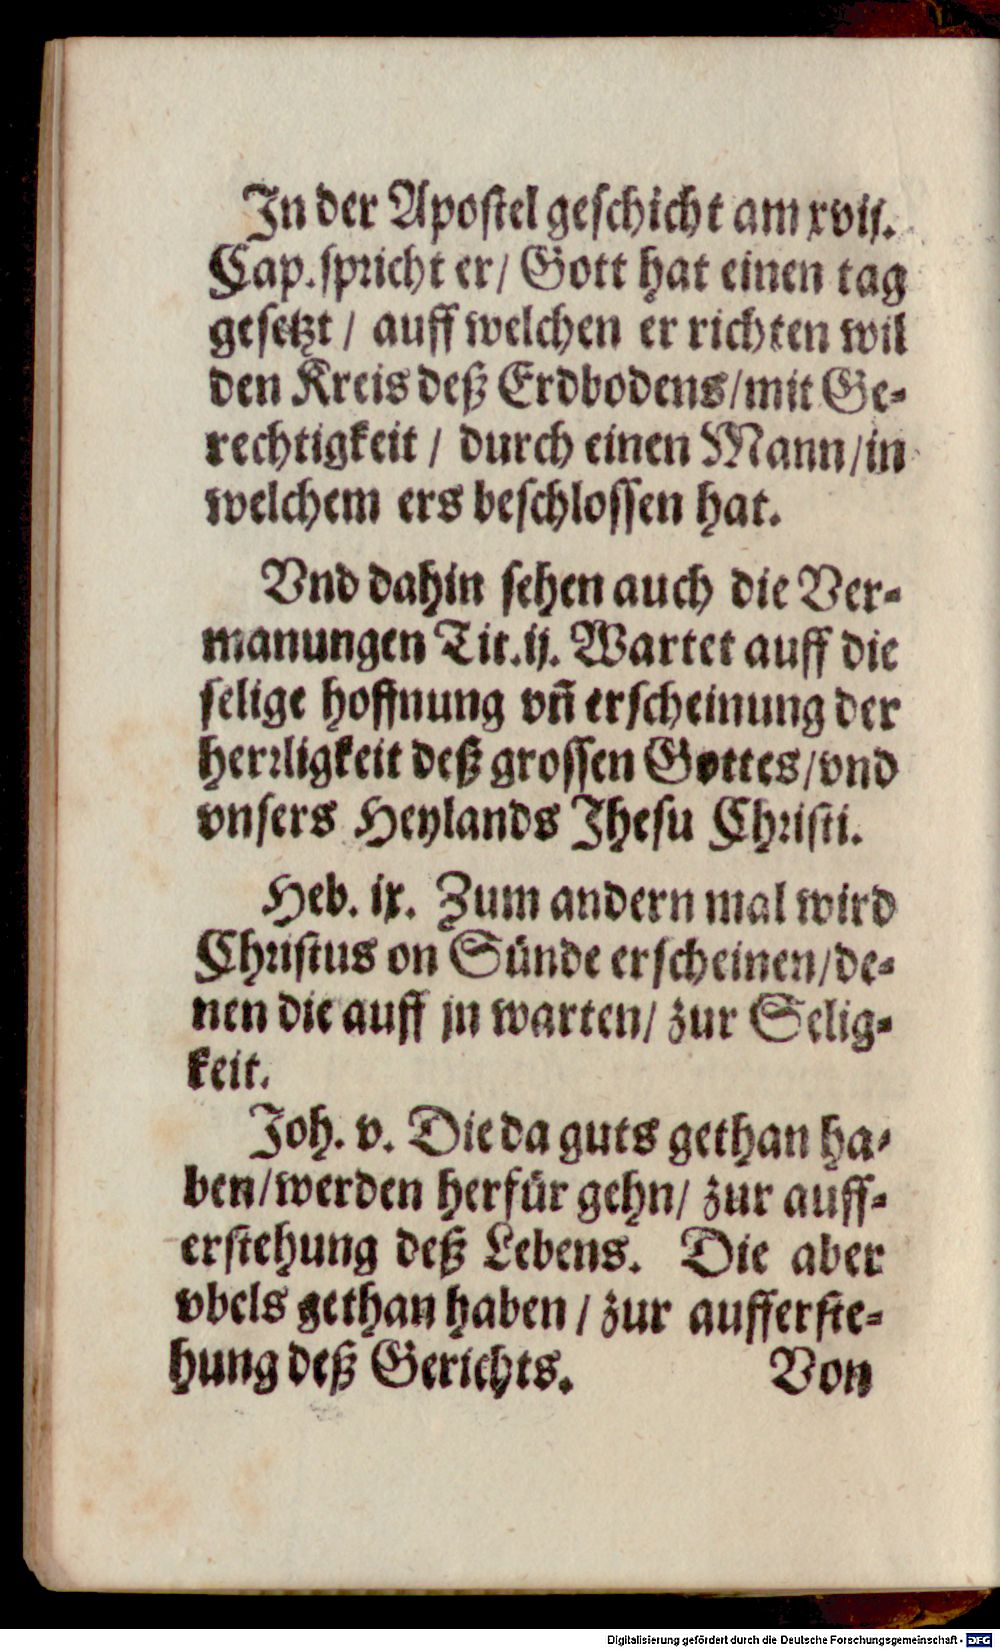 In der Apostel geschicht am xvij.
Cap. spricht er / Gott hat einen tag
gesetzt / auff welchen er richten wil
den Kreis deß Erdbodens / mit Ge-
rechtigkeit / durch einen Mann / in
welchem ers beschlossen hat.
Vnd dahin sehen auch die Ver-
manungen Tit. ij. Wartet auff die
selige hoffnung vñ erscheinung der
herrligkeit deß grossen Gottes / vnd
vnsers Heylands Jhesu Christi.
Heb. ix. Zum andern mal wird
Christus on Sünde erscheinen / de-
nen die auff jn warten / zur Selig-
keit.
Joh. v. Die da guts gethan ha-
ben / werden herfür gehn / zur auff-
erstehung deß Lebens. Die aber
vbels gethan haben / zur aufferste-
hung deß Gerichts. Von
Digitalisierung gefördert durch die Deutsche Forschungsgemeinschaft - DFG